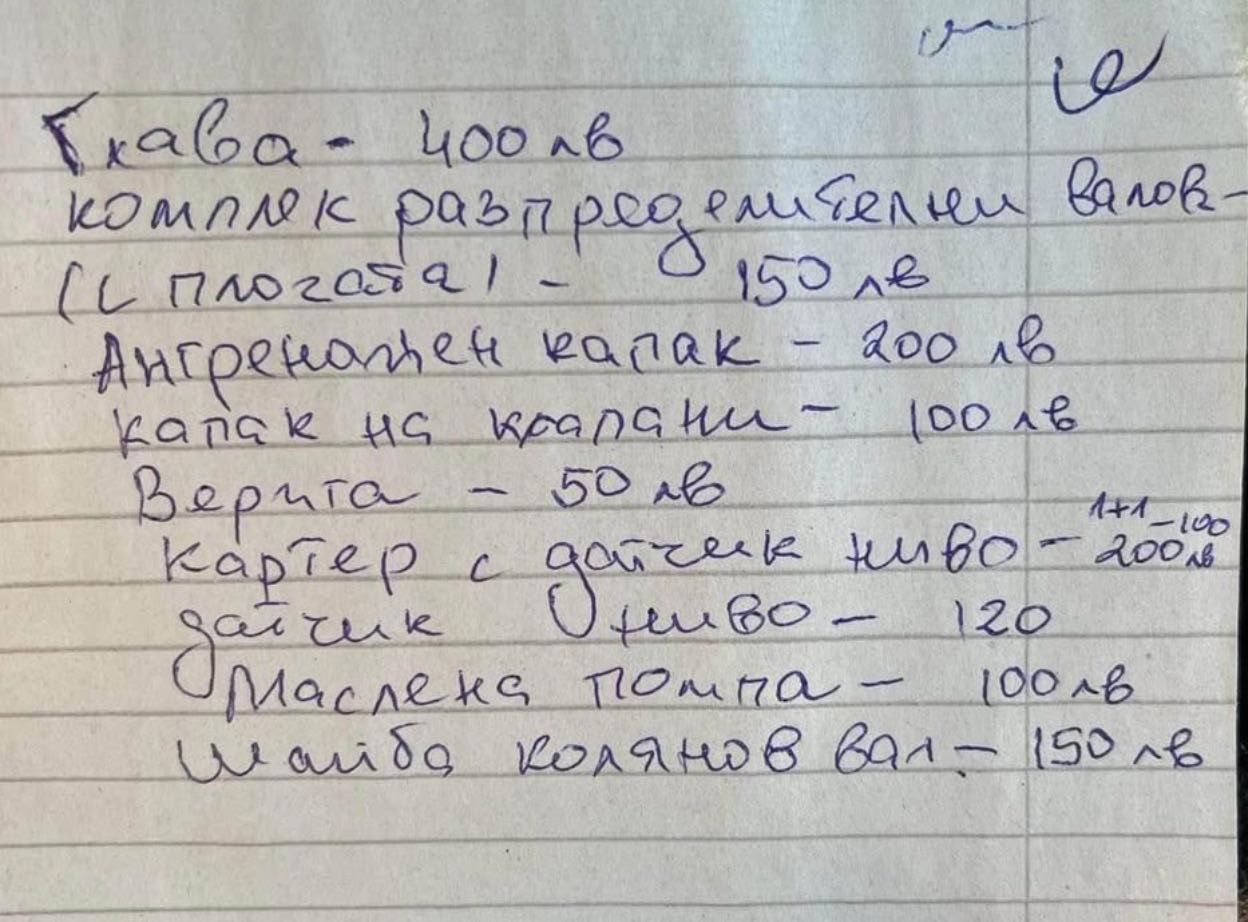 Глава - 400 лв
комплек разпределителни валов-
(с плогата) - 150 лв
Ангренажен капак - 200 лв
капак на клапани - 100 лв
Верига - 50 лв
1+1 - 100
Картер с датчик ниво - 200 лв
датчик ниво - 120
Маслена помпа - 100 лв
шайба колянов вал - 150 лв